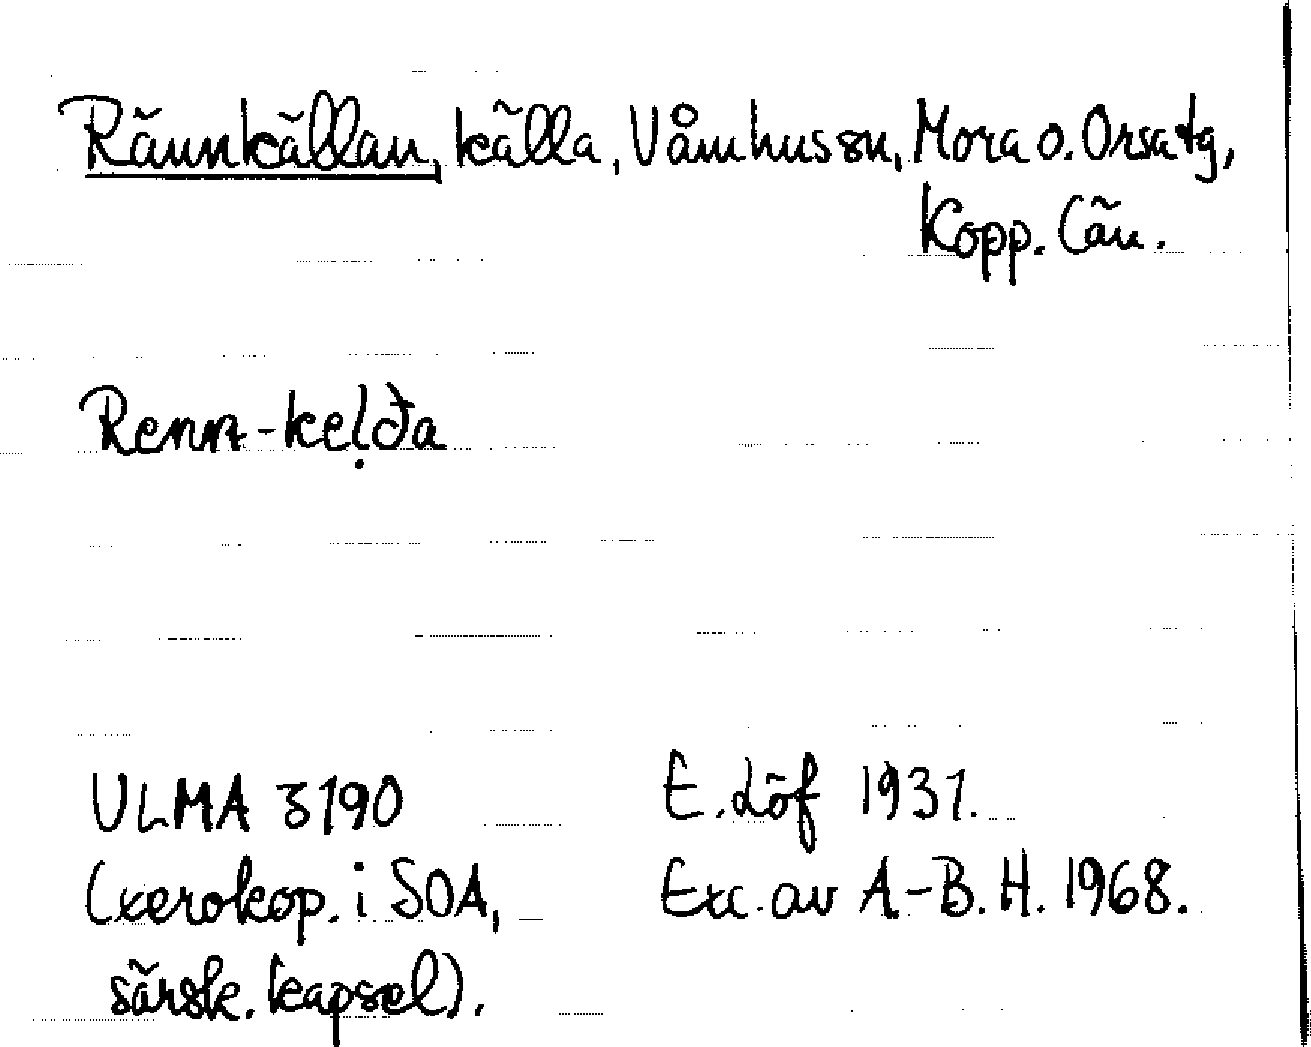 Rännkällan, källa, Våmhus sn, Mora o. Orsa tg,
Kopp. län.
Renn-keḷða
ULMA 3190 E. Löf 1931.
(xerokop. i SOA, Exc. av A-B. H. 1968.
särsk. kapsel).